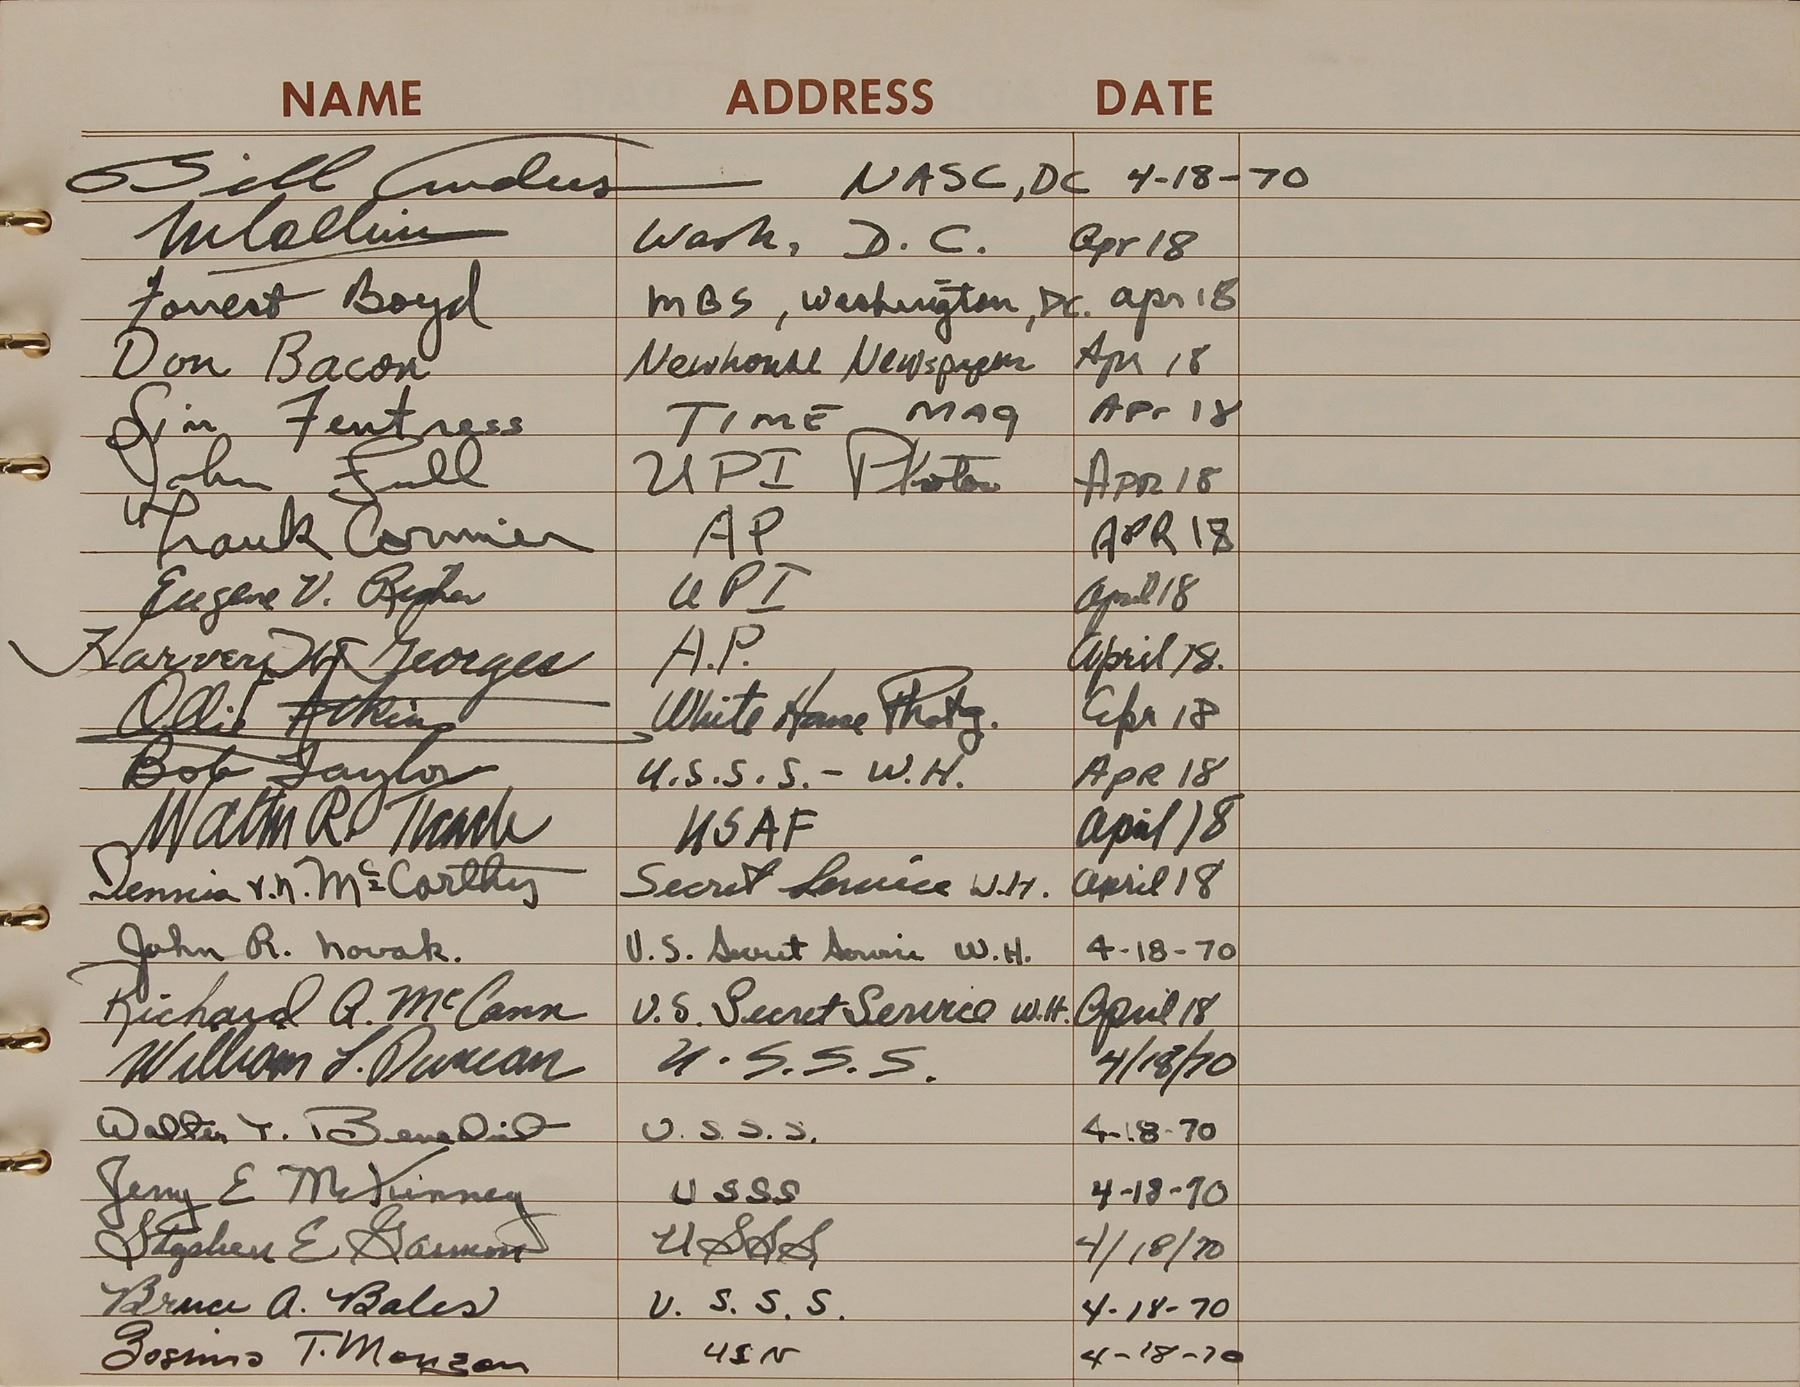 NAME ADDRESS DATE
Bill Anders NASC, DC 4-18-70
Wash, D.C. Apr 18
Forrest Boyd MBS, Washington, DC. Apr 18
Don Bacon Newhouse Newspapers Apr 18
Sim Fentress TIME MAG APr 18
John Full UPI Photos APR 18
Frank Cormier AP APR 18
Eugene V. Risher UPI April 18
Harvey W Georges A.P. April 18.
Ollie Atkins White House Photog. Apr 18
Bob Taylor U.S.S.S. - W.H. APR 18
R. USAF April 18
Dennis V.N. McCarthy Secret Service W.H. April 18
John R. Novak. U.S. Secret Service W.H. 4-18-70
Richard A. McCann U.S. Secret Service W.H. April 18
William L. Duncan U.S.S.S. 4/18/70
Walter T. Benedict U.S.S.S. 4-18-70
Jerry E McKinney USSS 4-18-70
Stephen E Garmon USSS 4/18/70
Bruce A. Bales U.S.S.S. 4-18-70
Zosimo T. Monzon USN 4-18-70